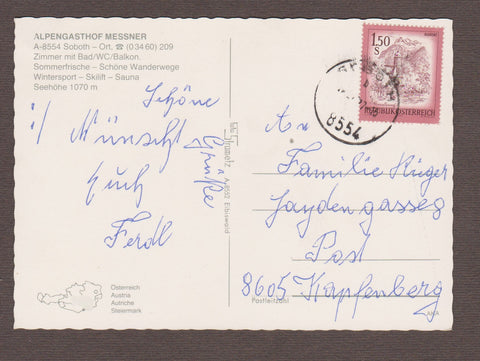 ALPENGASTHOF MESSNER
A-8554 Soboth – Ort. ☎ (0 34 60) 209
Zimmer mit Bad/WC/Balkon.
Sommerfrische – Schöne Wanderwege
Wintersport – Skilift – Sauna
Seehöhe 1070 m
Schöne
Grüße
Wünscht
Euch
Ferdl
Österreich
Austria
Autriche
Steiermark
A-8552 Eibiswald
1.50
S
REPUBLIK ÖSTERREICH
8554
An
Familie
Post
8605 Kapfenberg
Postleitzahl